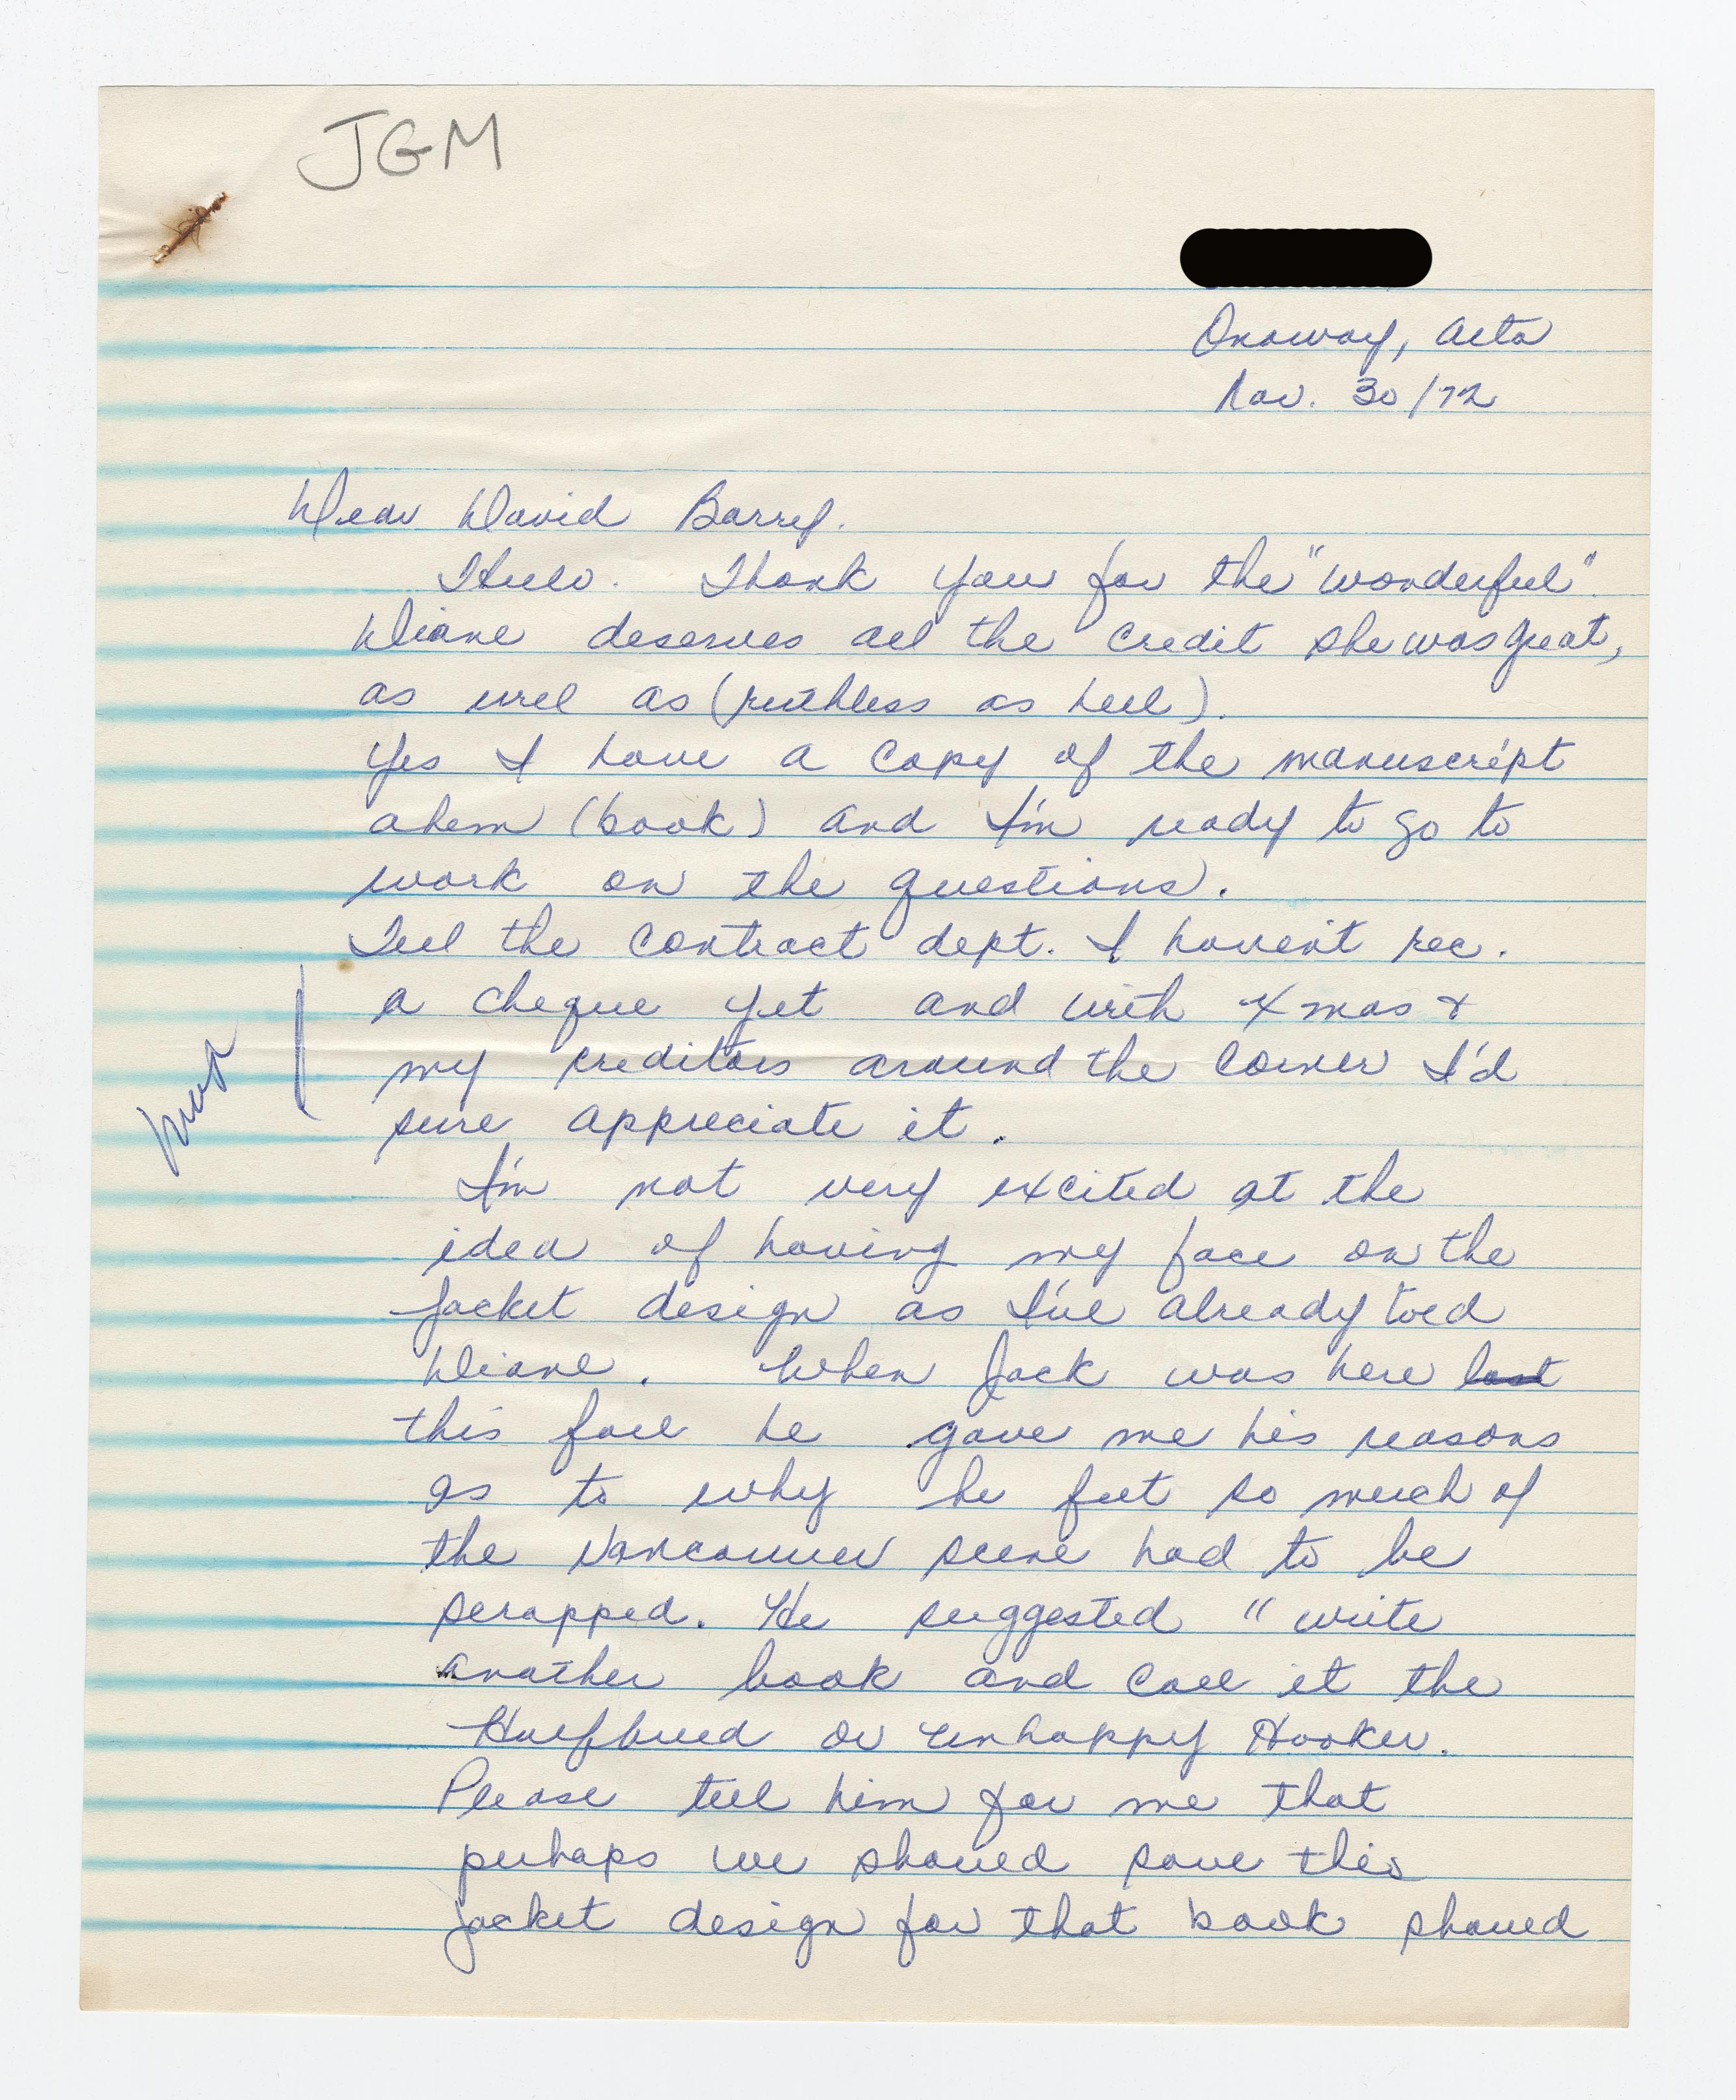 JGM
Onoway, Alta
Nov. 30/72
Dear David Barry.
Hello. Thank you for the "wonderful".
Diane deserves all the credit she was great,
as well as (ruthless as hell).
Yes I have a copy of the manuscript
ahem (book) and I'm ready to go to
work on the questions.
Tell the contract dept. I haven't rec.
a cheque yet and with Xmas &
my creditors around the corner I'd
sure appreciate it.
I'm not very excited at the
idea of having my face on the
jacket design as I've already told
Diane. When Jack was here last
this fall he gave me his reasons
as to why he felt so much of
the Vancouver scene had to be
scrapped. He suggested "write
another book and call it the
Halfbreed or Unhappy Hooker.
Please tell him for me that
perhaps we should save this
jacket design for that book should